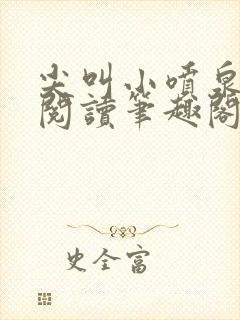 尖叫小噴泉
閱讀筆趣閣
史全富